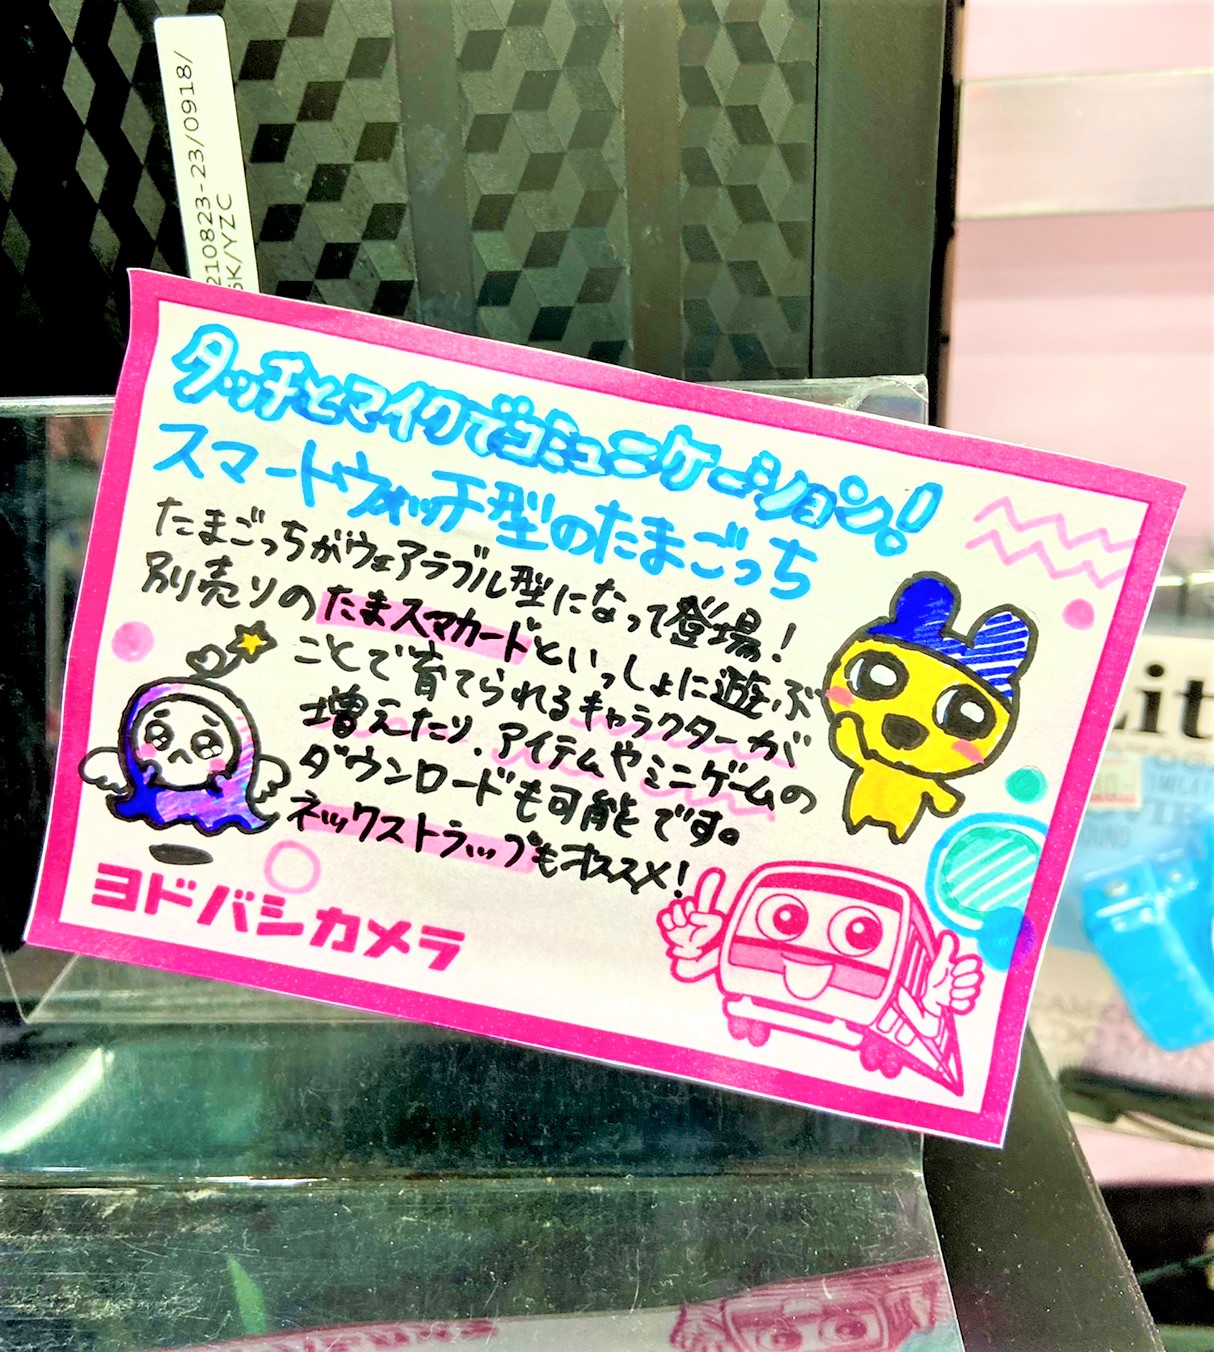 210823-23/0918/
SK/YZC
タッチとマイクでコミュニケーション!
スマートウォッチ型のたまごっち
たまごっちがウェアラブル型になって登場!
別売りのたまスマカードといっしょに遊ぶ
ことで育てられるキャラクターが
増えたり、アイテムやミニゲームの
ダウンロードも可能です。
ネックストラップもオススメ!
ヨドバシカメラ
Lit